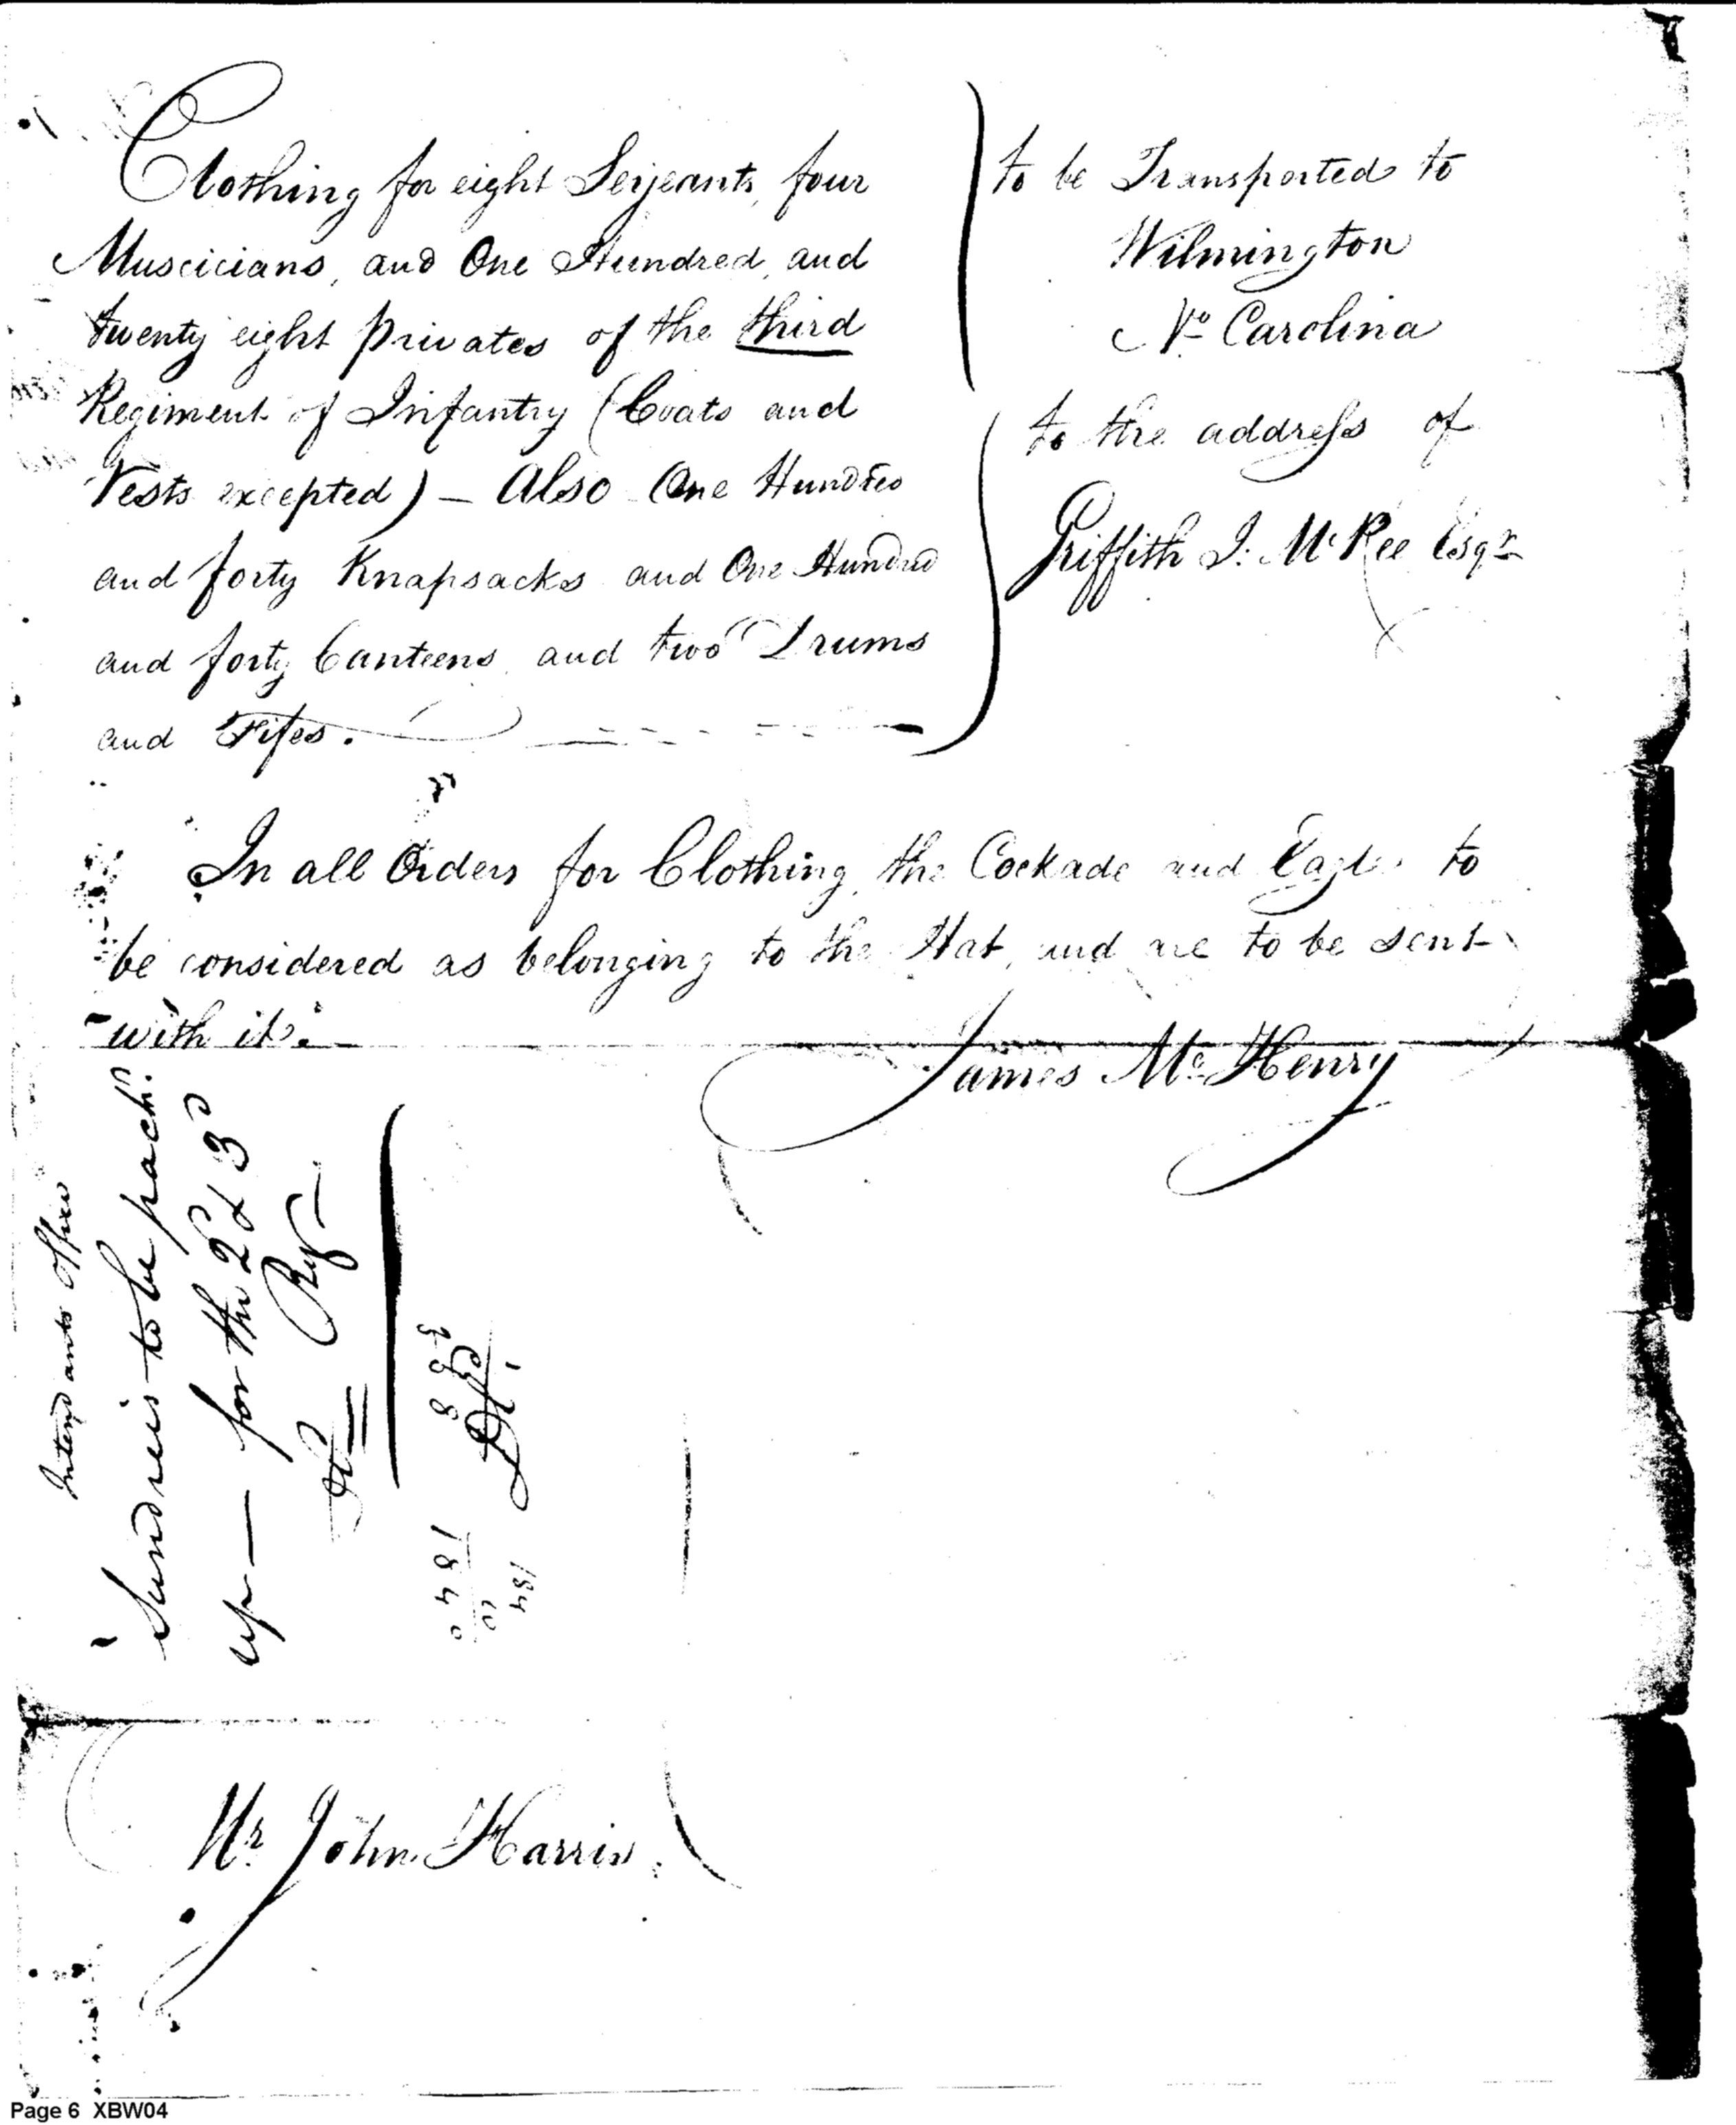 Clothing for eight Serjeants, four
Muscicians, and One Hundred, and
twenty eight privates of the third
Regiment of Infantry (Coats and
Vests excepted) — Also One Hundred
and forty Knapsacks and One Hundred
and forty Canteens, and two Drums
and Fifes.
to be Transported to
Wilmington
No Carolina
to the address of
Griffith J. McRee Esqr
In all Orders for Clothing, the Cockade and Eagle to
be considered as belonging to the Hat, and are to be sent
with it.
James McHenry
Intendants Office
Sundries to be packd
up — for the 2d & 3d
Regt
184
1840
Mr. John Harris
Page 6 XBW04